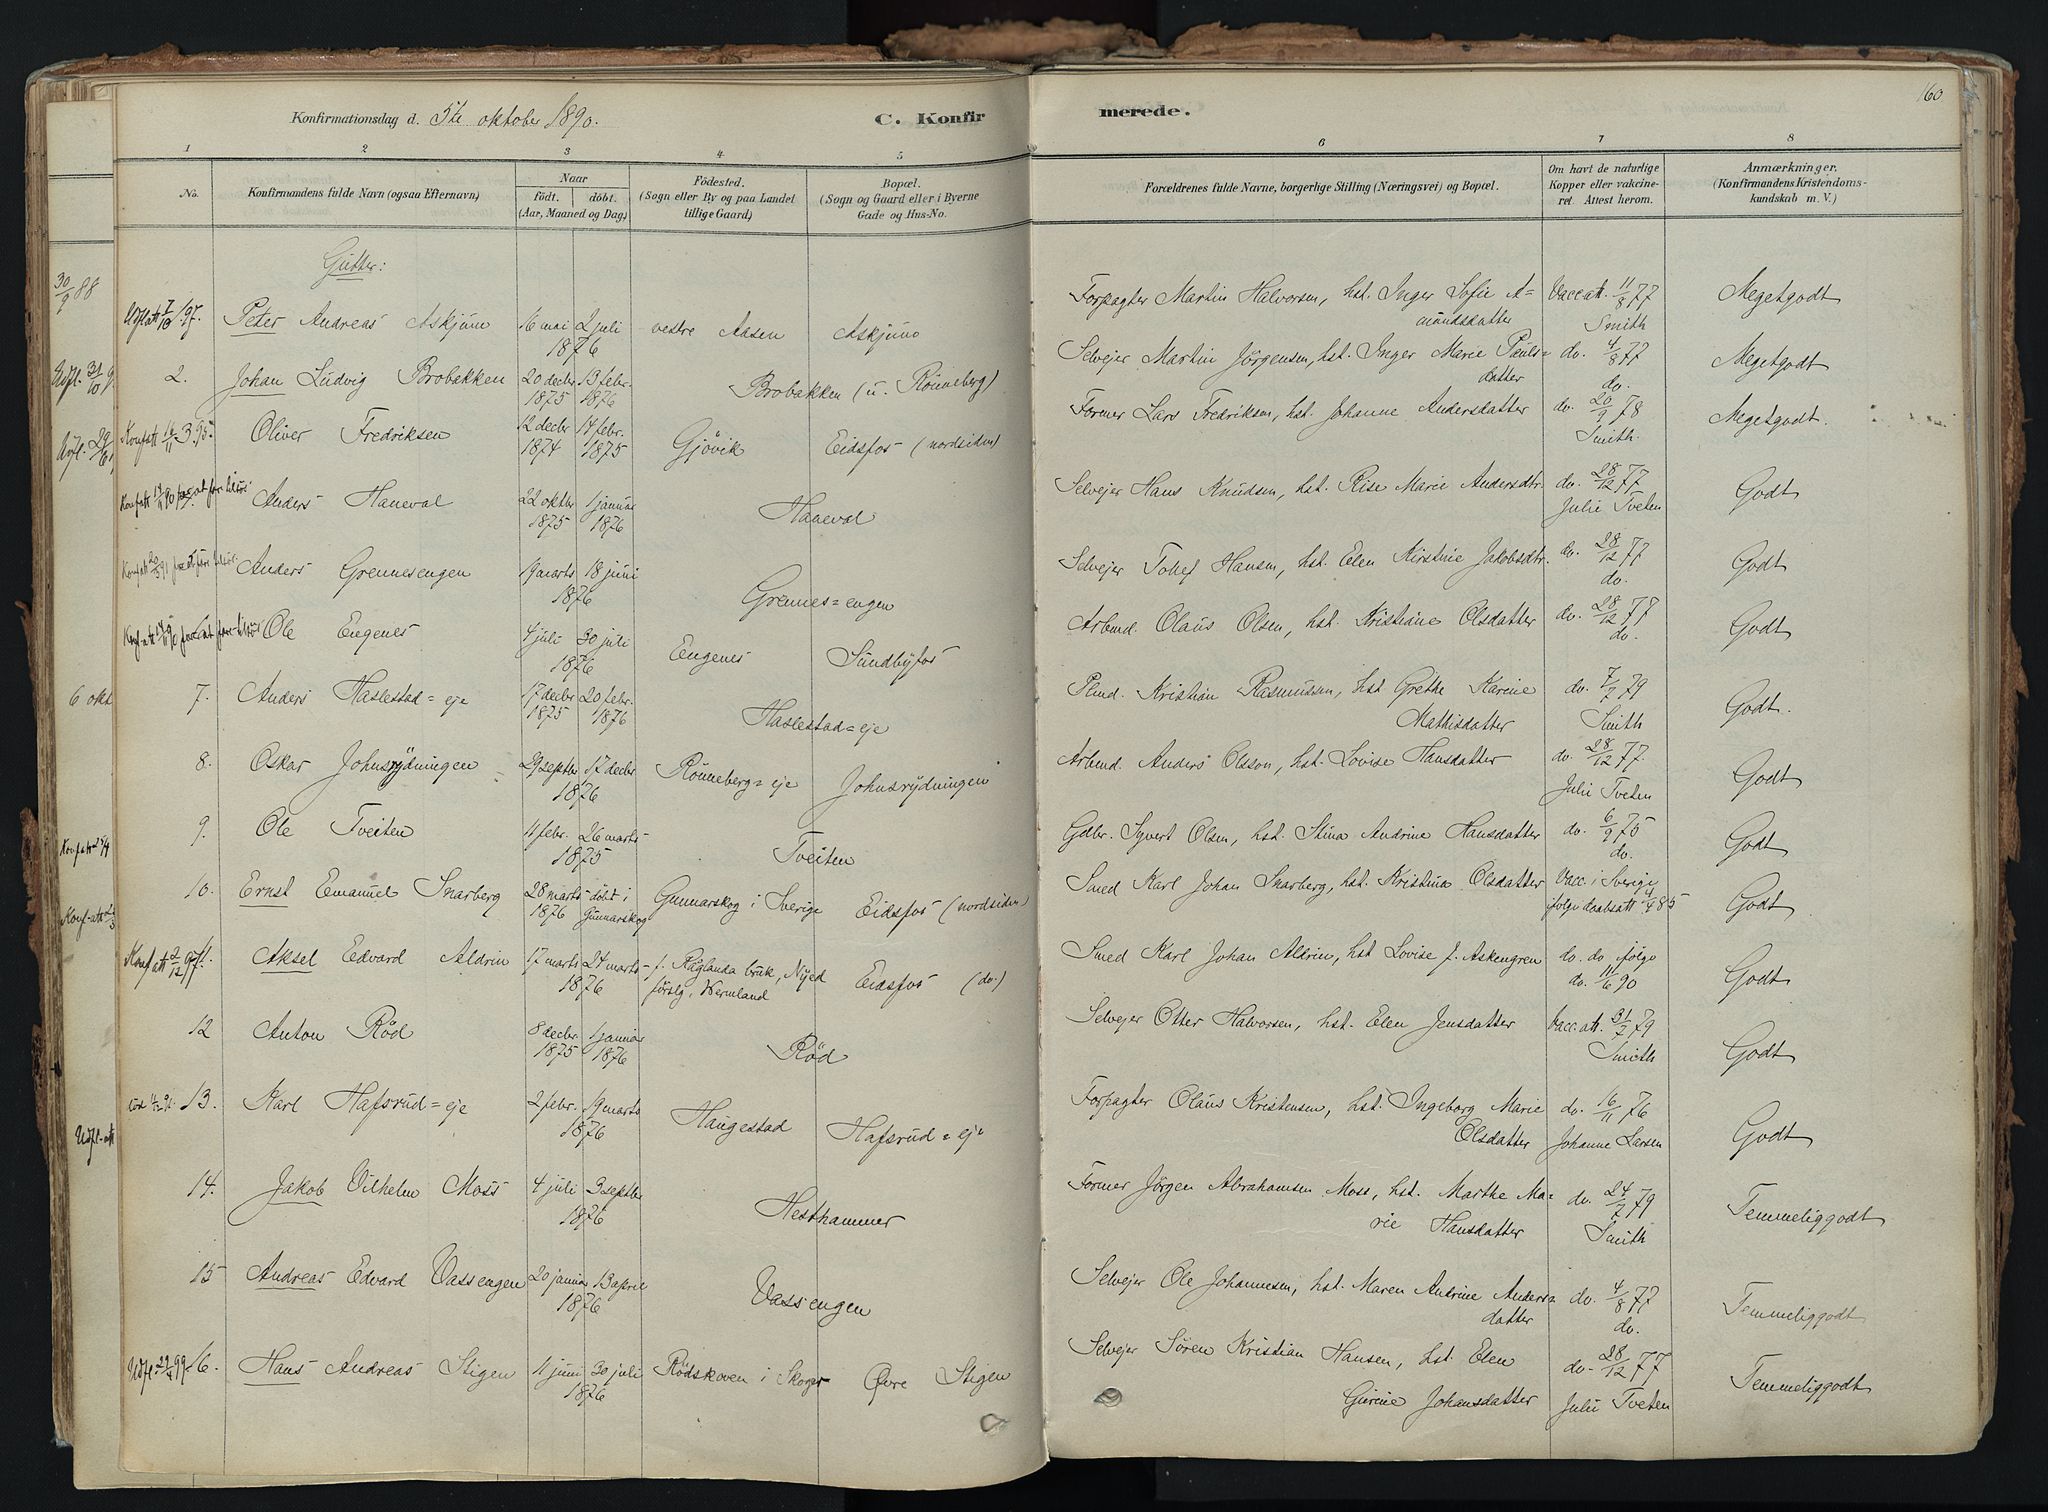 Konfirmationsdag d. 5te oktober 1890. C. Konfirmerede. 160
1 2 3 4 5 6 7 8
No. Konfirmandens fulde Navn (ogsaa Efternavn) Naar født. døbt. (Aar, Maaned og Dag) Fødested. (Sogn eller By og paa Landet tillige Gaard) Bopæl. (Sogn og Gaard eller i Byerne Gade og Hus-No. Forældrenes fulde Navne, borgerlige Stilling (Næringsvei) og Bopæl. Om havt de naturlige Kopper eller vakcineret. Attest herom. Anmærkninger. (Konfirmandens Kristendomskundskab m. V.)
Gutter:
30/9 88
Peter Andreas Askjum 16 mai 2 juli 1876 vestre Aasen Askjum Forpagter Martin Halvorsen, hst. Inger Sofie Amundsdatter Vacc att. 11/8 77 Smith Megetgodt
2. Johan Ludvig Brobakken 20 decbr 1875 13 febr. 1876 Brobakken (u. Rönneberg) Selvejer Martin Jörgensen, hst. Inger Marie Paulsdatter do. 4/8 77 do. Megetgodt
Konfatt 16/11 95 3. Oliver Fredriksen 12 decbr 1874 14 febr. 1875 Gjövik Eidsfos (nordsiden) Former Lars Fredriksen, hst. Johanne Andersdatter do. 20/9 78 Smith. Megetgodt.
Anders Haneval 22 oktbr 1875 1 januar 1876 Haneval Selvejer Hans Knudsen, hst. Rise Marie Andersdtr. do. 28/12 77 Julie Tveten Godt
Anders Grennesengen 19 marts 18 juni 1876 Grennes=engen Selvejer Tolief Hansen, hst. Elen Kirstine Jakobsdtr. do. 28/12 77 do. Godt
Ole Engenes 4 juli 30 juli 1876 Engenes Sundbyfos Arbmd. Olaus Olsen, hst. Kristiane Olsdatter do. 28/12 77 do. Godt
6 okt
7. Anders Haslestad=eje 17 decbr 1875 20 febr. 1876 Haslestad=eje Plmd. Kristian Rasmussen, hst Grethe Karine Mathisdatter do. 7/7 79 Smith Godt.
8. Oskar Johnsrydningen 29 septbr 17 decbr 1876 Rönneberg=eje Johnsrydningen Arbmd. Anders Olsson, hst. Lovise Hansdatter do. 28/12 77. Julie Tveten Godt
9. Ole Tveiten 11 febr. 26 marts 1875 Tveiten Gdbr. Syvert Olsen, hst. Stina Andrine Hansdatter do. 6/9 75 do. Godt
10. Ernst Emanuel Snarberg 28 marts 1876 döbt i Gunnarskog Gunnarskog i Sverige Eidsfos (nordsiden) Smed Karl Johan Snarberg, hst. Kristina Olsdatter Vacc. i Sverige följe daabsatt 4/4 85 Godt
Konf att 2/12 97. 11. Aksel Edvard Aldrin 17 marts 24 marts 1876 f. Råglanda bruk, Nyed förslg, Wermland Eidsfos (do.) Smed Karl Johan Aldrin, hst Lovise f. Askengren do. do følge do. 11/6 90 Godt
12 Anton Röd 8 decbr. 1875 1 januar 1876 Röd Selvejer Otter Halvorsen, hst. Elen Jensdatter Vacc. att. 31/7 79 Smith Godt
13. Karl Hafsrud=eje 2 febr. 19 marts 1876 Haugestad Hafsrud=eje Forpagter Olaus Kristensen, hst. Ingeborg Marie Olsdatter do. 16/11 76 Johanne Larsen Godt
14. Jakob Vilhelm Moss 4 juli 3 septbr 1876 Hesthammer Former Jörgen Abrahamsen Moss, hst. Marthe Marie Hansdatter do. 24/7 79 Smith Temmeliggodt
15 Andreas Edvard Vassengen 20 januar 13 april 1876 Vassengen Selvejer Ole Johannesen, hst. Maren Andrine Andersdatter do. 4/8 77 do. Temmeliggodt
16. Hans Andreas Stigen 11 juni 30 juli 1876 Rödskoven i Skoger Øvre Stigen Selvejer Sören Kristian Hansen, hst. Elen Gurine Johansdatter do. 28/12 77 Julie Tveten Temmeliggodt